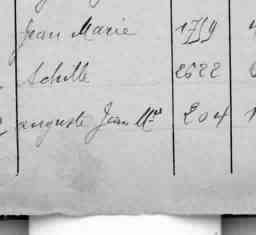 Jean Marie 1759
Achille 2622
auguste Jean Mie 204